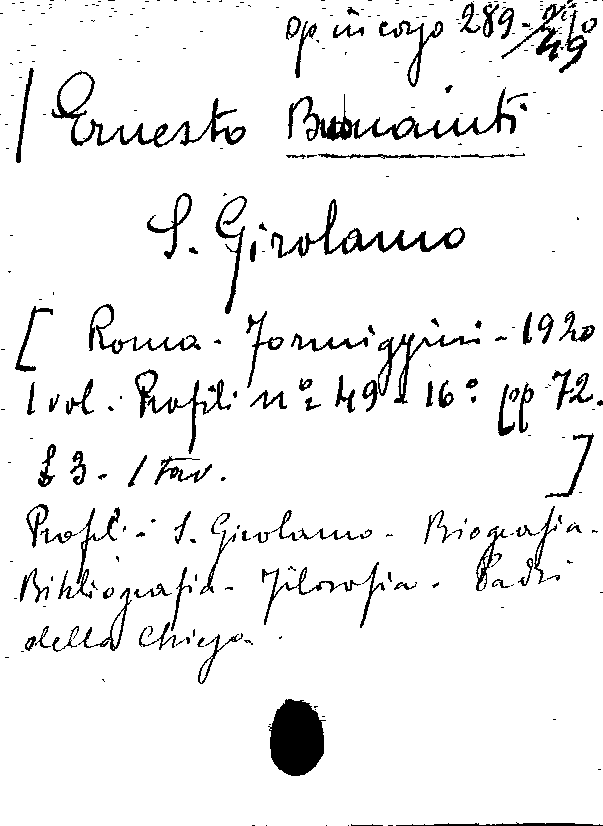 op. in corso 289-290/49
Ernesto Buonaiuti
S. Girolamo
[ Roma - Formiggini - 1920
1 vol. Profili nº 49 - 16º pp 72.
£ 3 - 1 tav. ]
Profili - S. Girolamo - Biografia -
Bibliografia - Filosofia - Padri
della Chiesa.